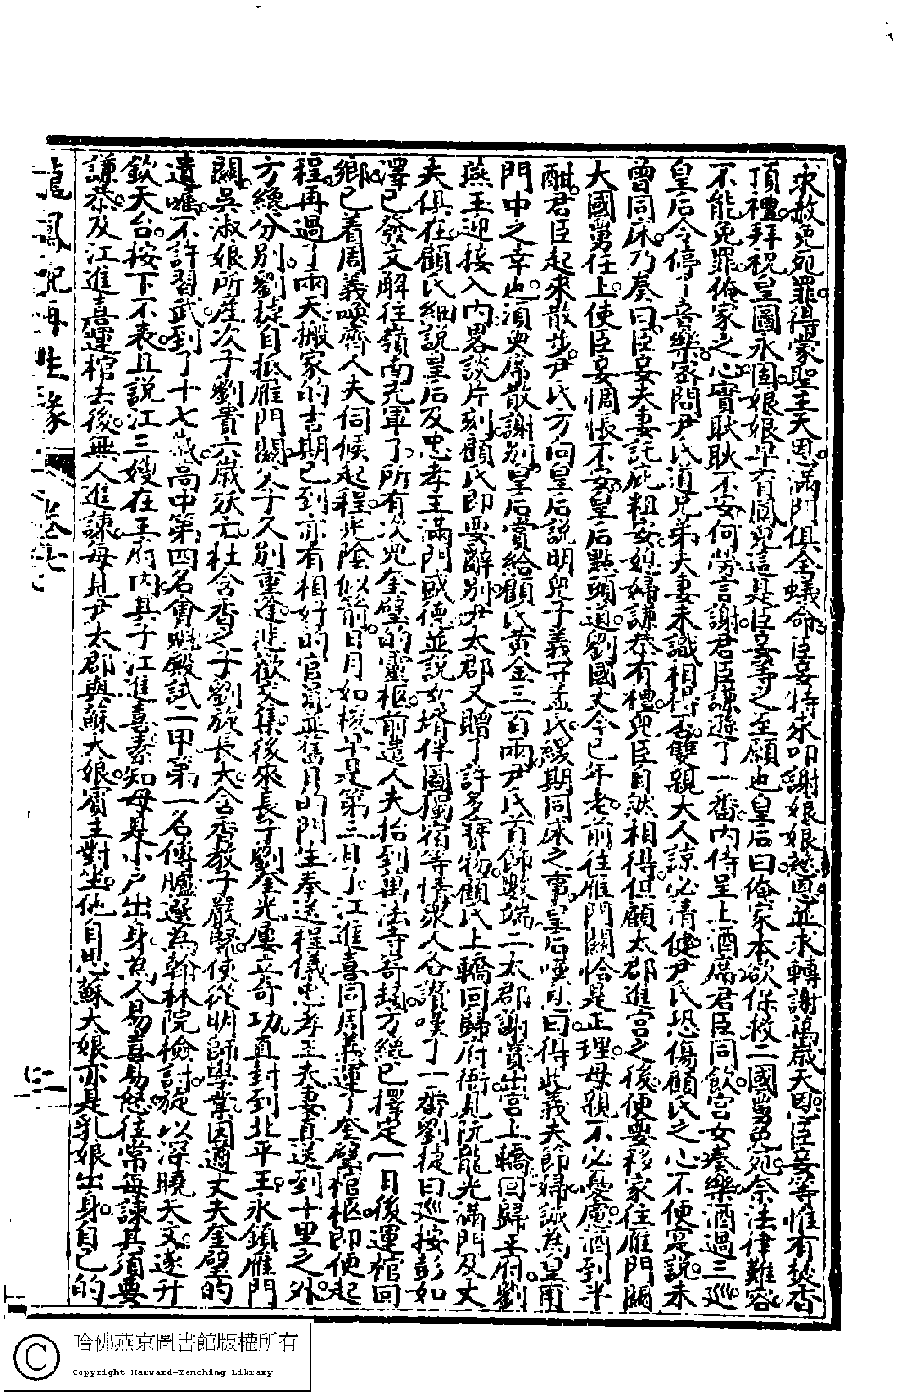 求赦免死罪得蒙聖主天恩滿門俱全蟻命臣妾特求叩謝娘娘慈恩並求轉謝萬歲天恩臣妾等惟有焚香
頂禮拜祝皇圖永固娘娘早有鳳兒這是臣妾等之至願也皇后曰俺家本欲保救二國舅免死奈法律難容
不能免罪俺家之心實耿耿不安何勞言謝君臣謙遜了一番內侍呈上酒席君臣同飲宮女奏樂酒過三巡
皇后令停了音樂密問尹氏道兄弟夫妻未識相得否雙親大人諒必清健尹氏恐傷顧氏之心不便寔說未
曾同床乃奏曰臣妾夫妻託庇粗安媳婦謙恭有禮與臣自然相得但顧太郡進宮之後便要移家住雁門關
大國舅任上使臣妾惆悵不安皇后點頭道劉國丈今已年老前往雁門關恰是正理母親不必憂慮酒到半
酣君臣起來散步尹氏方向皇后說明兒子義守孟氏緩期同床之事皇后嘆息曰得此義夫節婦誠為皇甫
門中之幸也須臾席散謝別皇后賞給顧氏黃金三百兩尹氏首飾數端二太郡謝賞出宮上轎回歸王府劉
燕王迎接入內畧談片刻顧氏即要辭別尹太郡又贈了許多寶物顧氏上轎回歸府衙見阮龍光滿門及丈
夫俱在顧氏細說皇后及忠孝王滿門盛德並說女婿伴圖獨宿等情眾人各讚嘆了一番劉捷曰巡按彭如
澤已發文解往嶺南充軍了所有次兒奎璧的靈柩前遣人夫抬到萬法寺寄頓方纔已擇定一日後運棺回
鄉已着周義喚齊人夫伺候起程光陰似箭日月如梭早是第三日了江進喜同周義運了奎璧棺柩即便起
程再過了兩天搬家的吉期已到亦有相好的官員並舊日的門生奉送程儀忠孝王夫妻直送到十里之外
方纔分別劉捷自抵雁門關父子久別重逢悲歡交集後來長子劉奎光屢立奇功直封到北平王永鎮雁門
關吳淑娘所產次子劉貴六歲殀亡杜含香之子劉旋長大含香教子嚴緊使從明師學業因遵丈夫奎璧的
遺囑不許習武到了十七歲高中第四名會魁殿試一甲第一名傳臚選為翰林院檢討旋以深曉天文遂升
欽天台按下不表且說江三嫂在王府內其子江進喜素知母是小戶出身為人易喜易怒往常每諫其須要
謙恭及江進喜運棺去後無人進諫每見尹太郡與蘇大娘賓主對坐他自思蘇大娘亦是乳娘出身自己的
龍鳳配再生緣 卷七
哈佛燕京圖書館版權所有
Copyright Harvard-Yenching Library